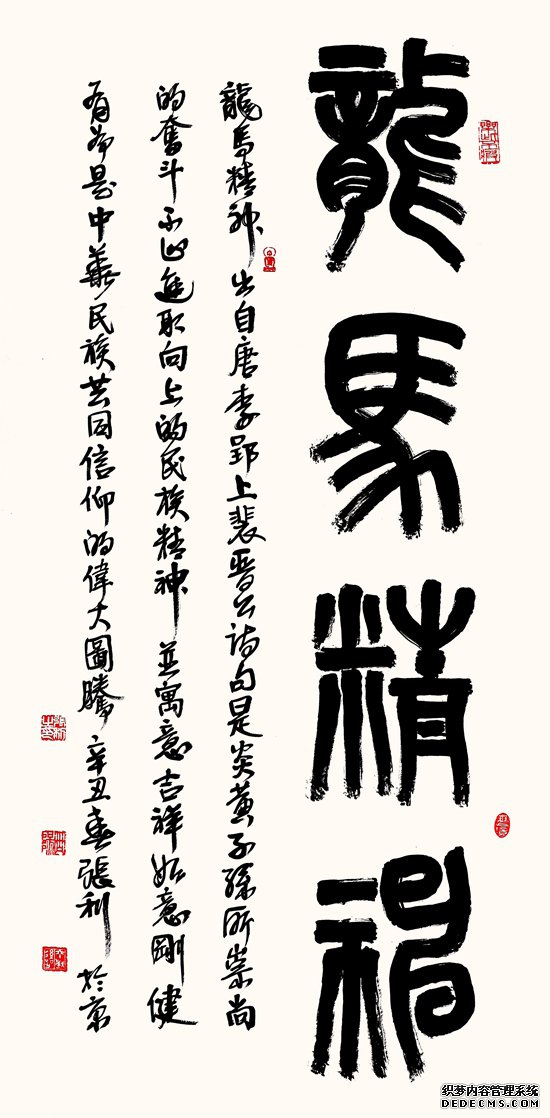 龍馬精神
龍馬精神出自唐李郢上裴晋公詩句是炎黄子孫所崇尚
的奮斗不止進取向上的民族精神並寓意吉祥如意剛健
有為是中華民族共同信仰的偉大圖騰辛丑春張利於京
织梦内容管理系统
DEDECMS.COM